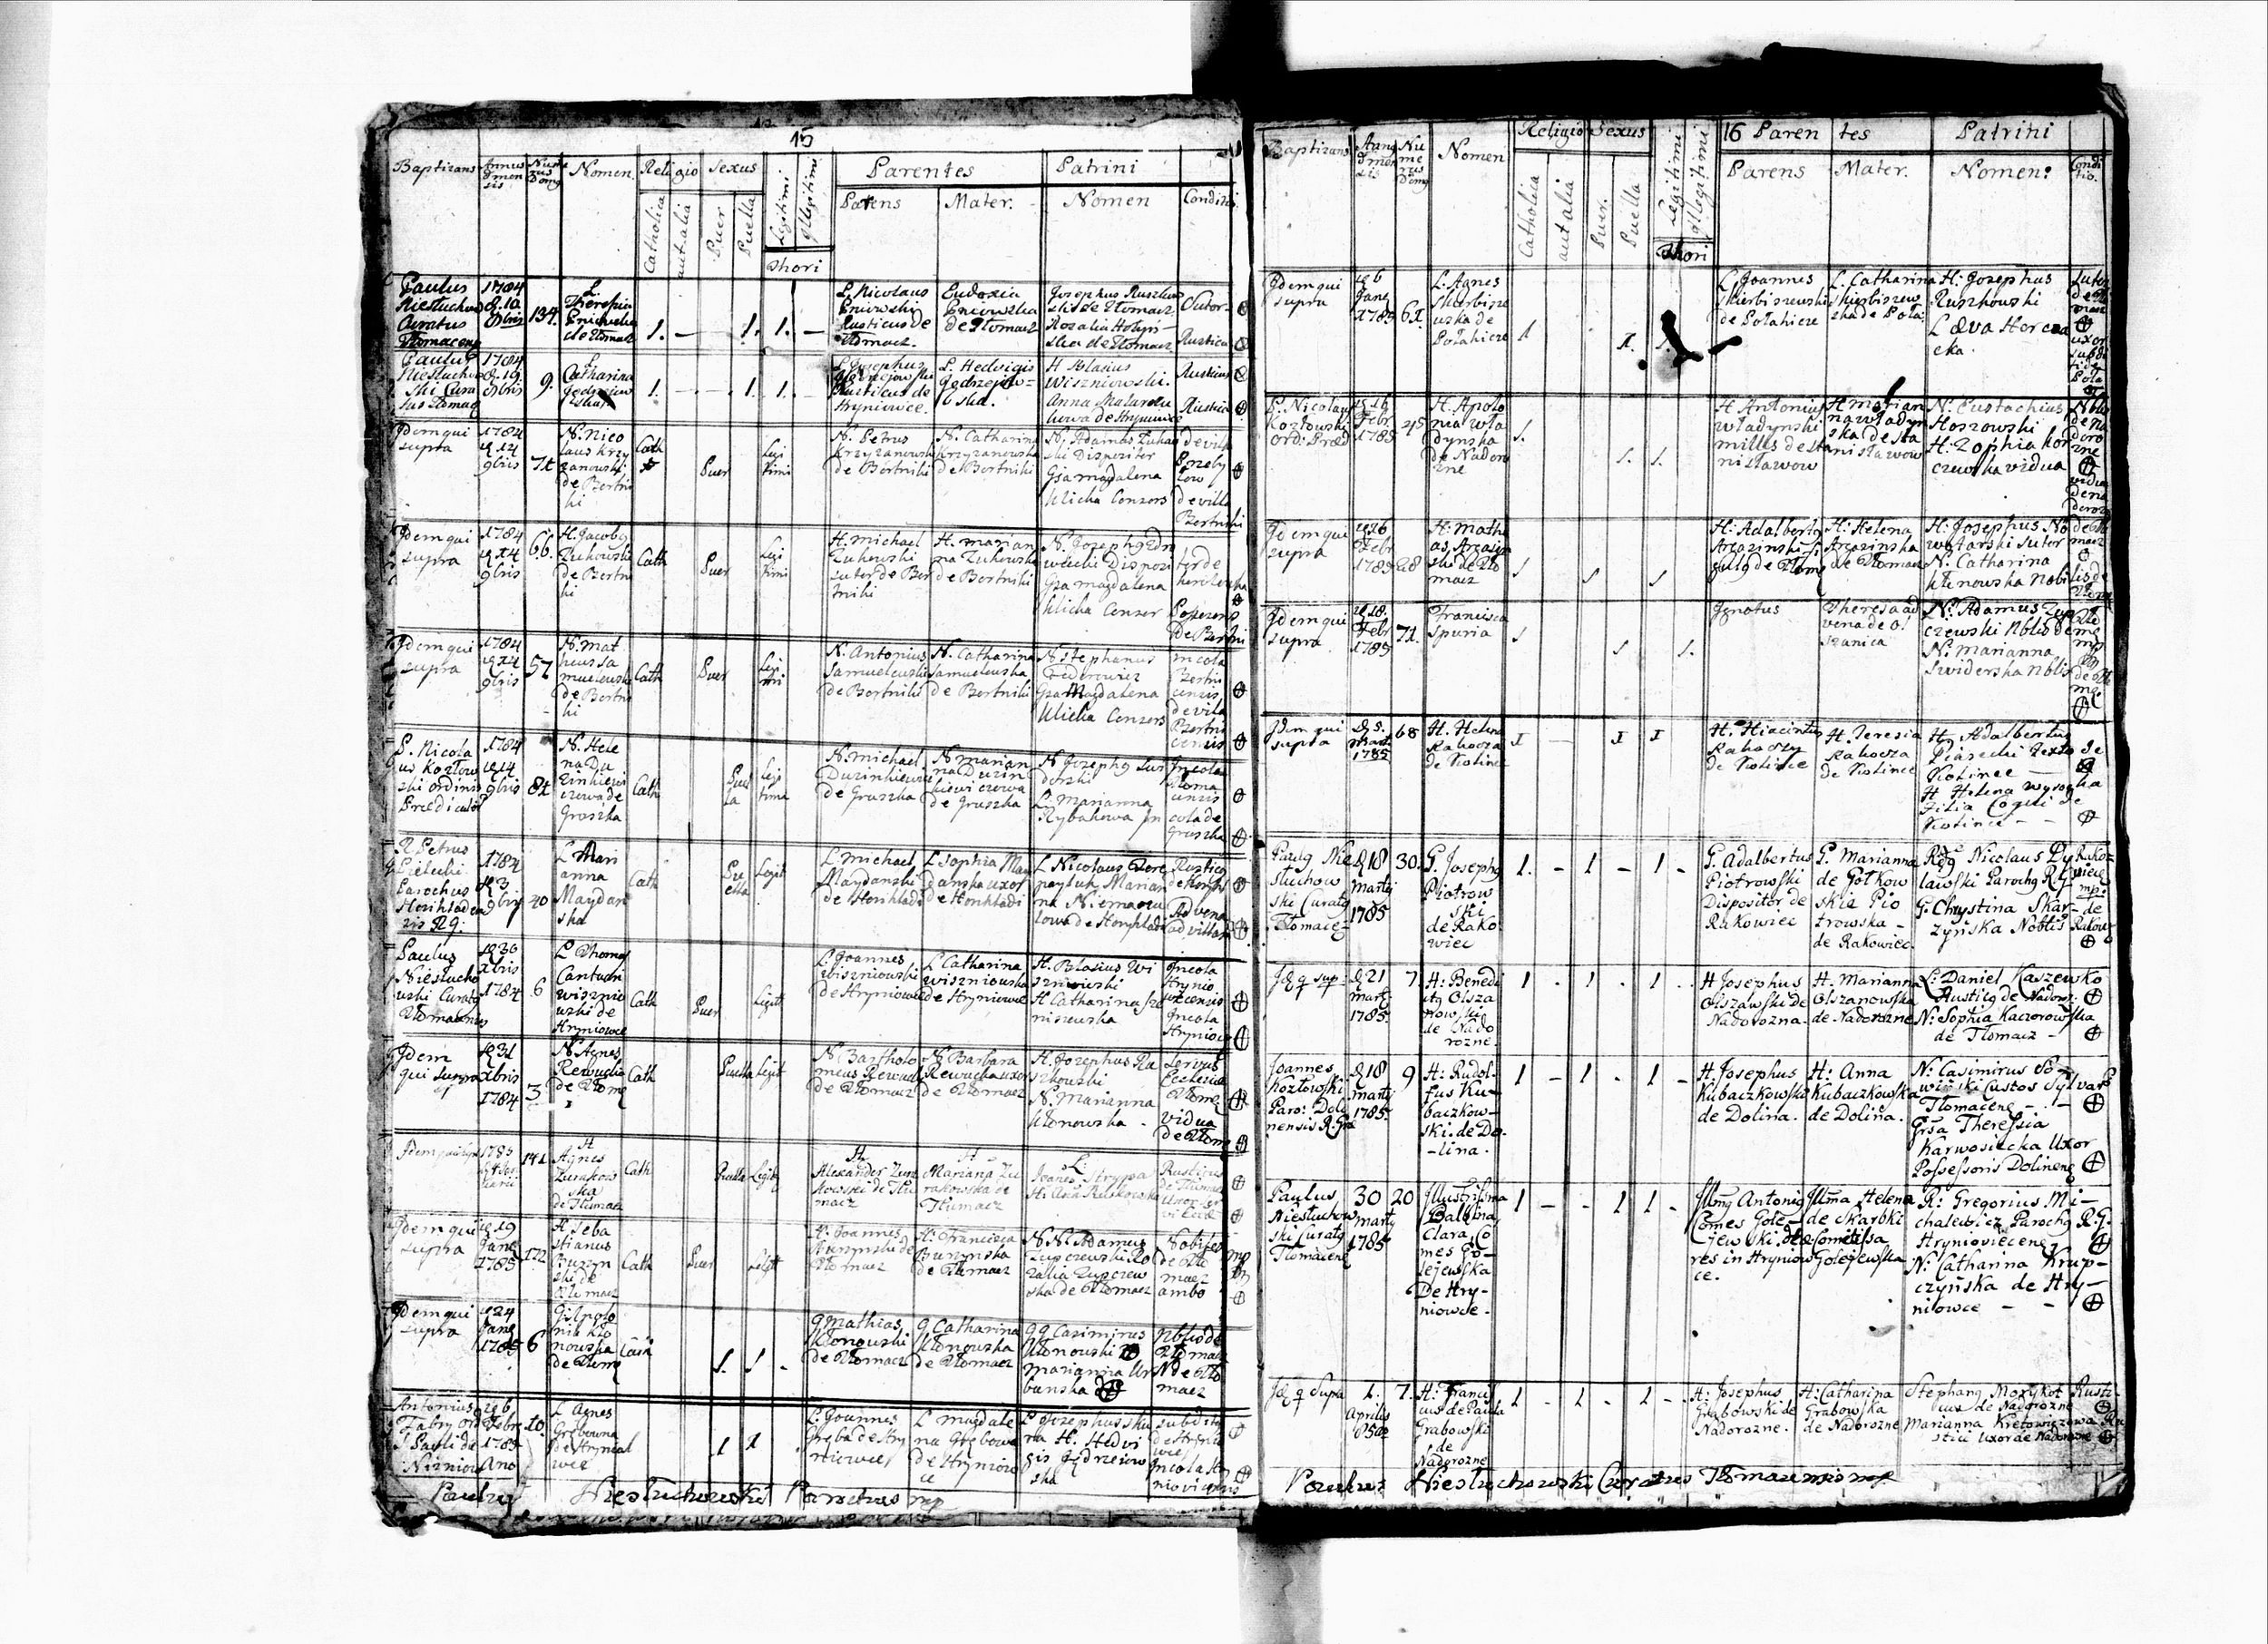 15
Baptizans
Annus
& men
sis
Nume
rus
Domg
Nomen.
Religio
Sexus
Parentes
Patrini
Catholica
aut alia
Puer
Puella
Legitimi
Illegitimi
Thori
Parens
Mater.
Nomen
Conditi
Paulus
Niesluchow
Curatus
Tłomacens
1784
d. 10
8bris
134.
L.
Theresia
de Tłomacz
1.
—
1.
1.
—
L. Nicolaus
Rusticus de
Tłomacz.
Eudoxia
de Tłomacz
Josephus Ruszkow
ski de Tłomacz
Rosalia Hołyn-
ska de Tłomacz
Sutor
Rustica
Paulus
Niesluchow
ski Cura
tus Tłomac
1784
d. 19.
8bris
9.
L.
Catharina
1.
1.
1.
L. Josephus
Rusticus de
Hryniowce.
L. Hedvigis
H Blasius
Wiszniowski.
Anna
de Hryniowce
Rusticus
Rustica
Idem qui
supra
1784
d 14
9bris
71
N. Nico
laus Krzy
zanowski
de Bortni
ki
Cath
Puer
Legi
timi
N. Petrus
Krzyzanowski
de Bortniki
N. Catharina
Krzyzanowska
de Bortniki
N. Adamus
ski Dispositor
Gsa Magdalena
Ulicka Consors
de villa
de villa
Bortniki
Idem qui
supra
1784
d 14
9bris
66.
H. Jacobg
Zukowski
de Bortni
ki
Cath
Puer
Legi
timi
H. Michael
Zukowski
sutor de Bor
tniki
H. Marian
na Zukowska
de Bortniki
N. Josephg
Disposi
Gsa Magdalena
Ulicka Consor
tor de
Idem qui
supra
1784
d 14
9bris
57
N. Mat
heus Sa
muelewski
de Bortni
ki
Cath
Puer
Legi
timi
N. Antonius
Samuelewski
de Bortniki
N. Catharina
Samuelewska
de Bortniki
N Stephanus
Fedorowicz
Gsa Magdalena
Ulicka Consors
Incola
Bortni
censis
de villa
Bortni
censis
P. Nicola
us Kozłow
ski Ordinis
Predicator
1784
d 14
9bris
81
N. Hele
na Du
zinkiewi
czowa de
Gruszka
Cath
Puel
la
Legi
tima
N. Michael
Duzinkiewicz
de Gruszka
N Marian
na Duzin
kiewiczowa
de Gruszka
N Josephg
L. Marianna
Rybakowa
Incola
Tłoma
censis
cola de
Gruszka
R Petrus
Parochus
1784
d 3
9bris
20
L Mari
anna
Maydan
ska
Cath
Pu
ella
Legit
L. Michael
Maydanski
L Sophia May
danska uxor
L Nicolaus
Marian
na
Rustica
Advena
Paulus
Niesłucho
wski Curatg
Tłomacensis
d 30
Xbris
1784
6
L Thomas
Cantuari
Wisznio
wski de
Hryniowce
Cath
Puer
Legit
L. Joannes
Wiszniowski
de Hryniowce
L Catharina
Wiszniowska
de Hryniowce
H. Blasius Wi
szniowski
H Catharina
niszewska
Incola
Hrynio
wcensis
Incola
Hryniow
Idem
qui supra
d 31
Xbris
1784
3
N Agnes
Rewucka
de Tłomg
Cath
Puella
Legit
N. Bartholo
meus Rewucki
de Tłomacz
N. Barbara
Rewucka uxor
de Tłomacz
H. Josephus Ru
szkowski
N. Marianna
Kłonowska
Servus
Ecclesia
Tłomg
vidua
de Tłomg
Idem qui sup
1785
141
H
Agnes
Zurakow
ska
de Tłumacz
Cath
Puella
Legit
H.
Alexander Zura
kowski de Tłu
macz
H
Mariana Zu
rakowska de
Tłumacz
L.
Joanes Strypa
H. Ana Ruskowska
Rusticus
de Tłumac
Uxor
Idem qui
supra
d 19
Jang
1785
172
H Seba
stianus
Buzyn
ski de
Tłomacz
Cath
Puer
Legit
H: Joannes
Buzynski de
Tłomacz
H. Francisca
Buzynska
de Tłomacz
NN. Adamus
Zupczewski Ro
zalia Zupczew
ska de Tłomacz
Nobiles
de Tło
macz
ambo
Idem qui
supra
d 24
Jang
1785
6
G Apolo
nia Kło
nowska
de Tłomg
Cath
1.
1.
-
G Mathias
Kłonowski
de Tłomacz
G Catharina
Kłonowska
de Tłomacz
GG Casimirus
Kłonowski
Marianna Ur
banska
Nblis de
Tłomacz
N de Tło
macz
Antonius
d 6
Febr
1785
Ano
10
L Agnes
Grebowna
de Hrynio
wce
1
1
L. Joannes
Greba de Hry
niowce
L Magdale
na Grebowa
de Hryniow
ce
L Josephus Sku
ra H. Hedvi
gis Jędrzeiow
ska
subditg
de Hrynio
wce
Incola Hry
niovicensis
Paulus Niesłuchowski Curatus mp
16
Baptizans
Anng
& men
sis
Nu
me
rus
Domg
Nomen
Religio
Sexus
Catholica
aut alia
Puer.
Puella
Legitimi
Illegitimi
Thori
Parentes
Patrini
Parens
Mater.
Nomen:
Condi
tio.
Idem qui
supra
d 6
Jang
1785
61.
L. Agnes
Skierbisze
wska de
Połahicze
1
1.
L Joannes
Skierbiszewski
de Połahicze
L. Catharina
Skierbiszew
ska de Poła
H: Josephus
Ruszkowski
L Æva Horcza
cka.
Sutor
de Tło
macz
uxor
subdi
ti de
Poła
P. Nicolaus
Kozłowski
Ord: Præd
d 16
Febr
1785
45
H. Apolo
nia Wła
dynska
de Nadoro
zne
1.
1.
1.
H Antonius
Władynski
milles de Sta
nisławow
H Marian
na Władyn
ska de Sta
nisławow
N: Eustachius
Hoszowski
H: Zophia Kor
czewska vidua
Nblis
de Na
doro
zne
vidua
de Na
dorozn
Idem qui
supra
d 26
Febr
1785
28
H: Math
as Arcazin
ski de Tło
macz
1
1
1
H: Adalbertg
Arcazinski
de Tłomg
H: Helena
Arcazinska
de Tłomacz
H: Josephus No
wotarski sutor
N: Catharina
Kłonowska Nobilis de
de Tło
macz
Idem qui
supra
d 18.
Febr
1785
71.
Francisca
spuria
1
1
1.
Ignotus
Theresa ad
vena de O
szanica
N: Adamus Zup
czewski Nblis de
N: Marianna
Swiderska Nblis
Idem qui
supra
d 5.
Marti
1785
68
H. Helena
Rakocza
de Kolince
1
—
1
1
H. Hiacintus
Rakoczy
de Kolince
H. Teresia
Rakocza
de Kolince
H. Adalbertus
Piasecki
Kolince
H Helena Wysocka
Filia Coqui de
Kolince - -
Paulg Nie
słuchow
ski Curatg
Tłomacē-
d 18
Martij
1785
30.
G. Josephg
Piotrow
ski
de Rako
wiec
1.
-
1
-
1
-
G. Adalbertus
Piotrowski
Dispositor de
Rakowiec
G. Marianna
de Gołkow
skie Pio
trowska -
de Rakowiec.
Rdg Nicolaus Dy
lawski Parochg R.G
G. Chrystina Skar-
zyńska Noblis
Rako-
wiec
mp:
de
Rakow
Id q sup
d 21
Marti
1785.
7
H: Benedi
ctg Olsza
nowski
de Nado
rozne.
1
.
1
.
1
.
H Josephus
Olszawski de
Nadorozna.
H. Marianna
Olszanowska
de Nadorozne
L: Daniel Kaszewko
Rusticg de Nadorz.
N: Sophia Kaczorowska
de Tłomacz -
Joannes
Kozłowski
Paro: Doli
nensis R.Gra
d 18
Martij
1785.
9
H: Rudol-
fus Ku-
baczkow-
ski. de Do-
-lina.
1
-
1
.
1
-
H Josephus
Kubaczkowski
de Dolina.
H: Anna
Kubaczkowska
de Dolina.
N: Casimirus So-
wiński Custos Sylvar
Tłomacene - . -
Grsa Theressia
Karwosiecka Uxor
Possessoris Dolineng
Paulus
Niesłuchow
ski Curatg
Tłomacene
30
Marty
1785
20
Illustrissma
Balbina
Clara Co
mes Go-
lejewska
De Hry-
niowce.
1
-
-
1
1
-
Illmg Antonig
Comes Gole-
jewski. Hæ
res in Hryniow
ce.
Illma Helena
de Skarbki
Cometissa
Golejewska
R: Gregorius Mi-
chalewicz Parochg R.G.
Hrynioviecene,
N: Catharina Krup-
czyńska de Hry-
niowce - -
Id q Supa
1.
Aprilis
85ao
7.
H: Francis
cus de Paula
Grabowski
de
Nadorozne
1
.
1
.
1
-
H: Josephus
Grabowski de
Nadorozne.
H: Catharina
Grabowska
de Nadorozne
Stephang Morykot Rusti-
cus de Nadorozne
Marianna Kretowiczowa Ru
stici Uxor de Nadorozne
Paulus Niesłuchowski Curatus Tłomacensis mp